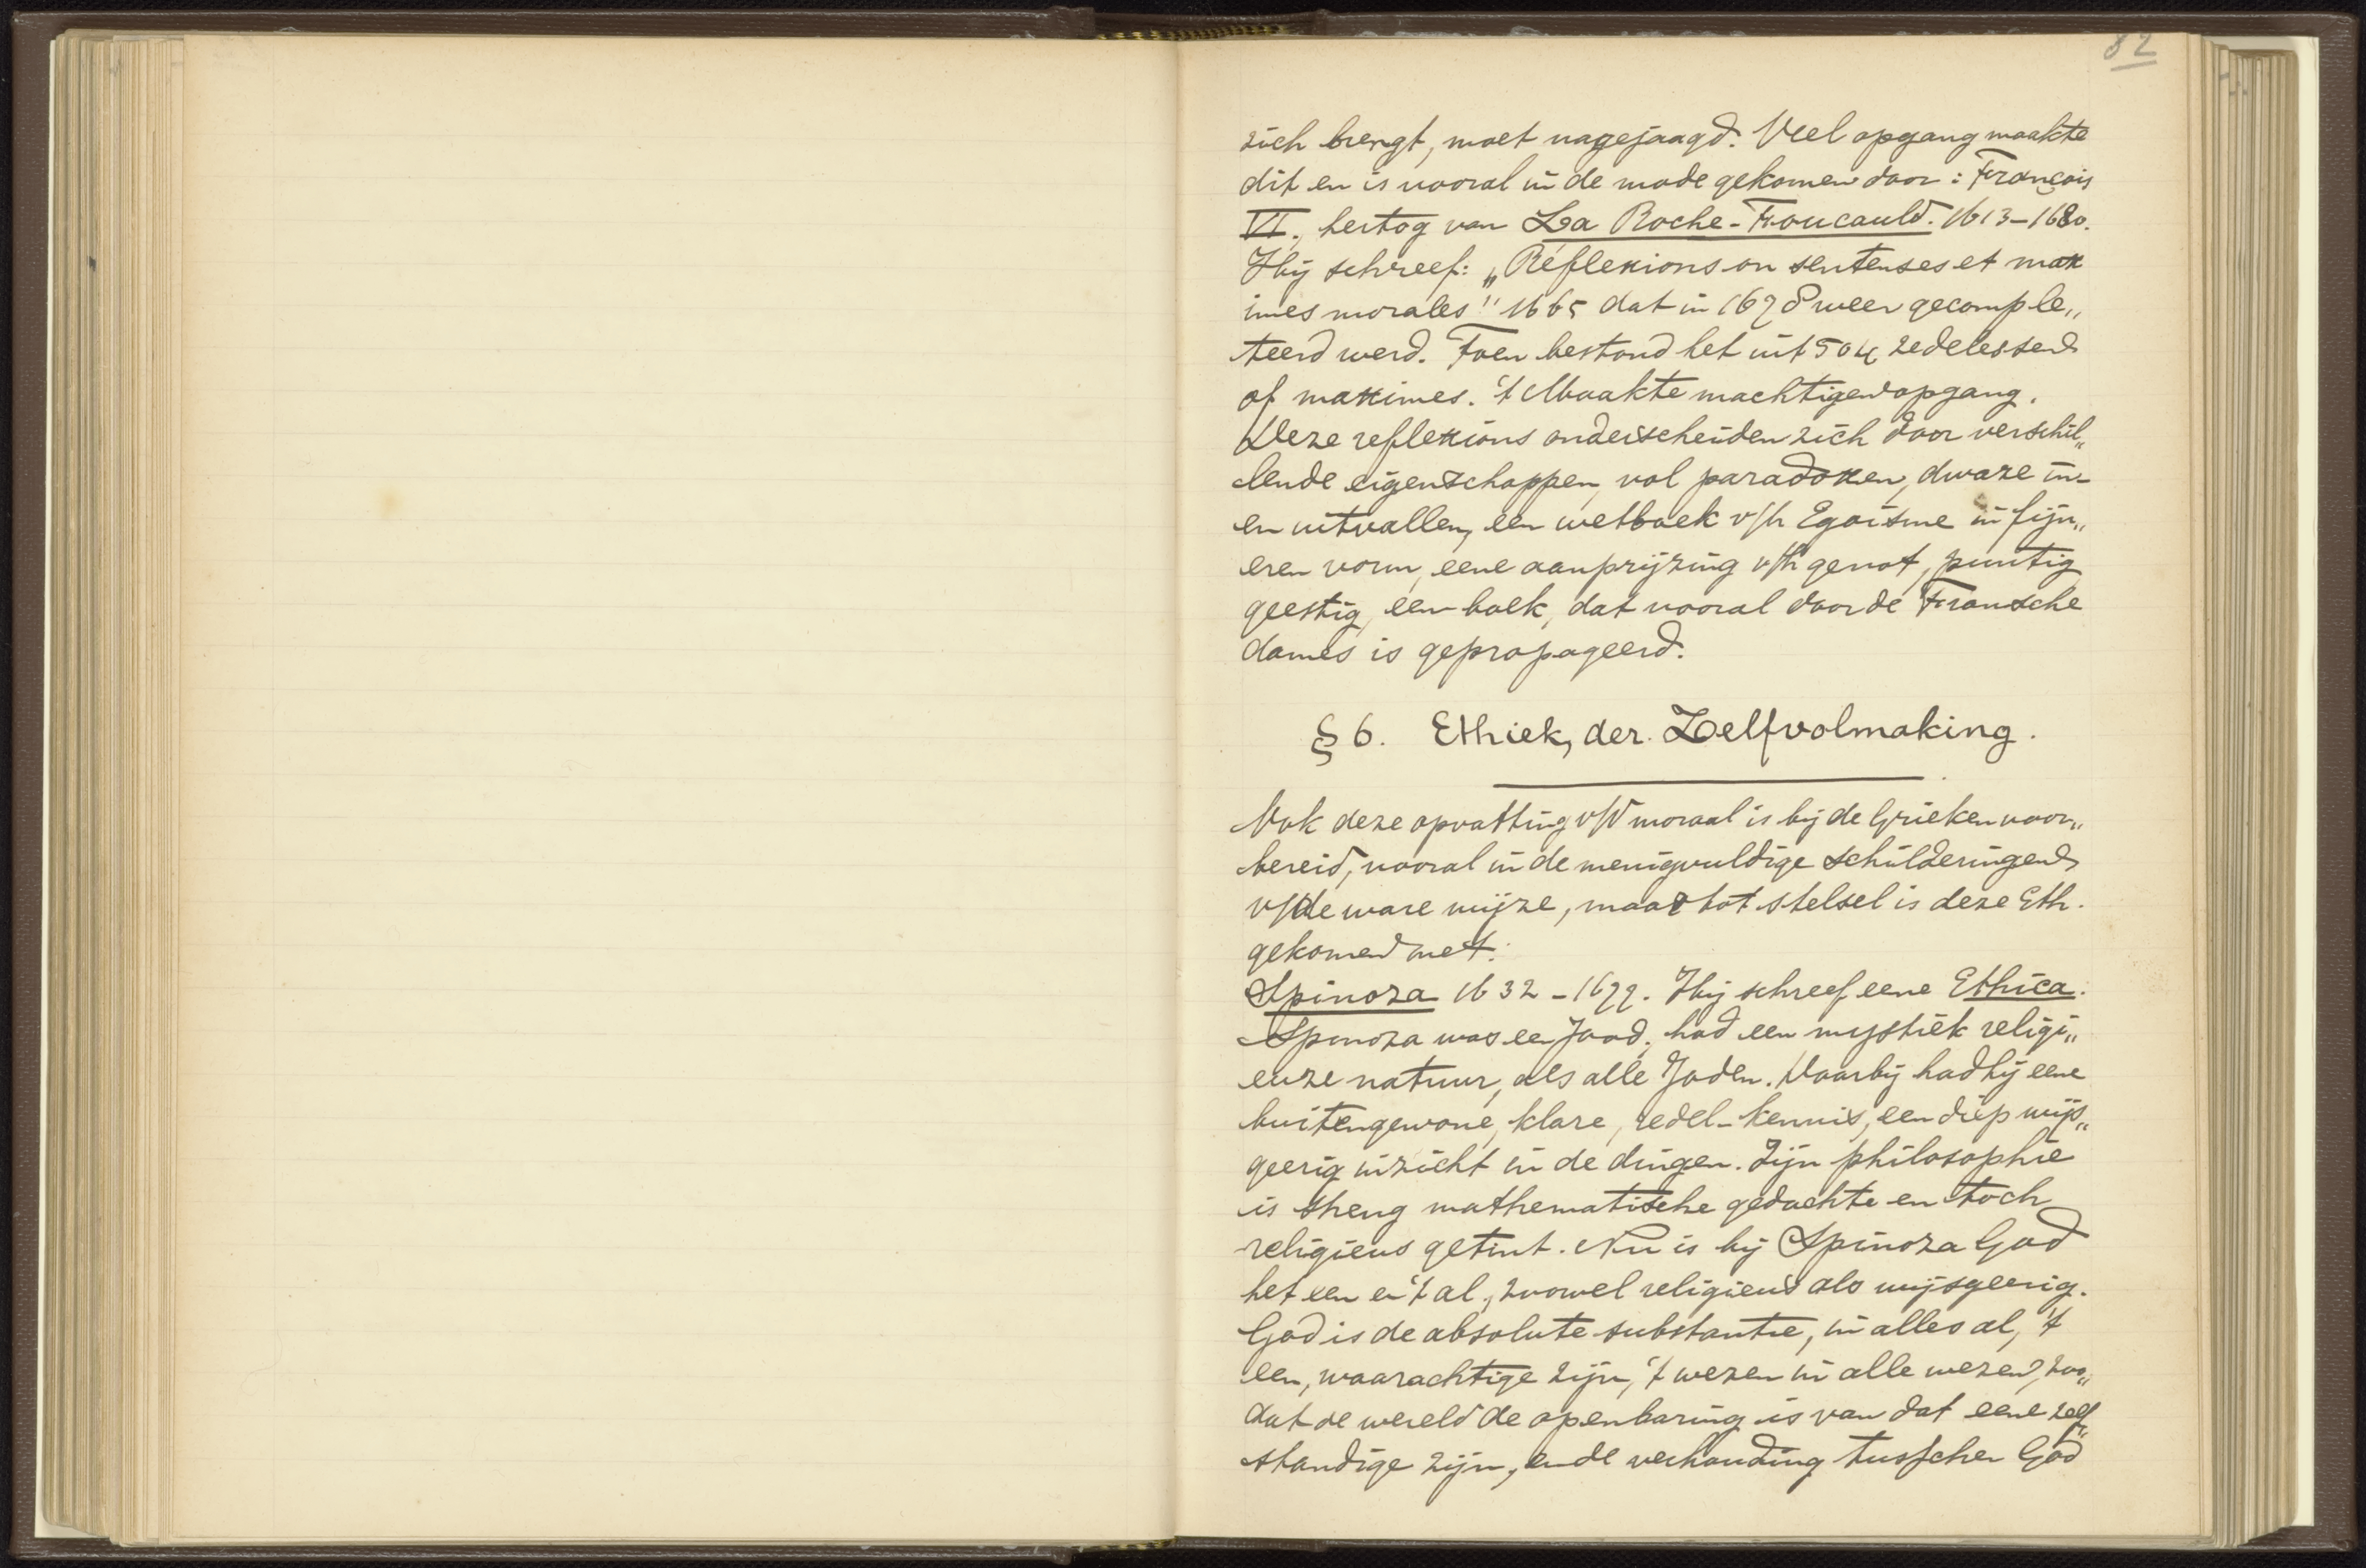 82
zich brengt, moet nagejaagd. Veel opgang maakte
dit en is vooral in de mode gekomen door: François
VI., hertog van La Roche-Foucauld. 1613-1680.
Hij schreef: „Réflexions ou sentenses et max
imes morales" 1665 dat in 1678 weer gecomple„
teerd werd. Toen bestond het uit 504 zedelessen
of maximes. 't Maakte machtigen opgang.
Deze reflexions onderscheiden zich door verschil„
lende eigenschappen, vol paradoxen, dwaze in-
en uitvallen, een wetboek v/h Egoïsme in fijn„
eren vorm, eene aanprijzing v/h genot, puntig
geestig, een boek, dat vooral door de Fransche
dames is gepropageerd.
§ 6. Ethiek, der Zelfvolmaking.
Ook deze opvatting v/d moraal is bij de Grieken voor„
bereid, vooral in de menigvuldige schilderingen
v/de ware wijze, maar tot stelsel is deze Eth.
gekomen met:
Spinoza 1632-1677. Hij schreef eene Ethica.
Spinoza was een Jood, had een mystiek religi„
euze natuur, als alle Joden. Daarbij had hij eene
buitengewone, klare, redel-kennis, een diep wijs„
geerig inzicht in de dingen. Zijn philosophie
is streng mathematische gedachte en toch
religieus getint. Nu is bij Spinoza God
het een en 't al, zoowel religieus als wijsgeerig.
God is de absolute substantie, in alles al, 't
een, waarachtige zijn, 't wezen in alle wezen, zoo„
dat de wereld de openbaring is van dat eene zelf„
standige zijn, en de verhouding tusschen God